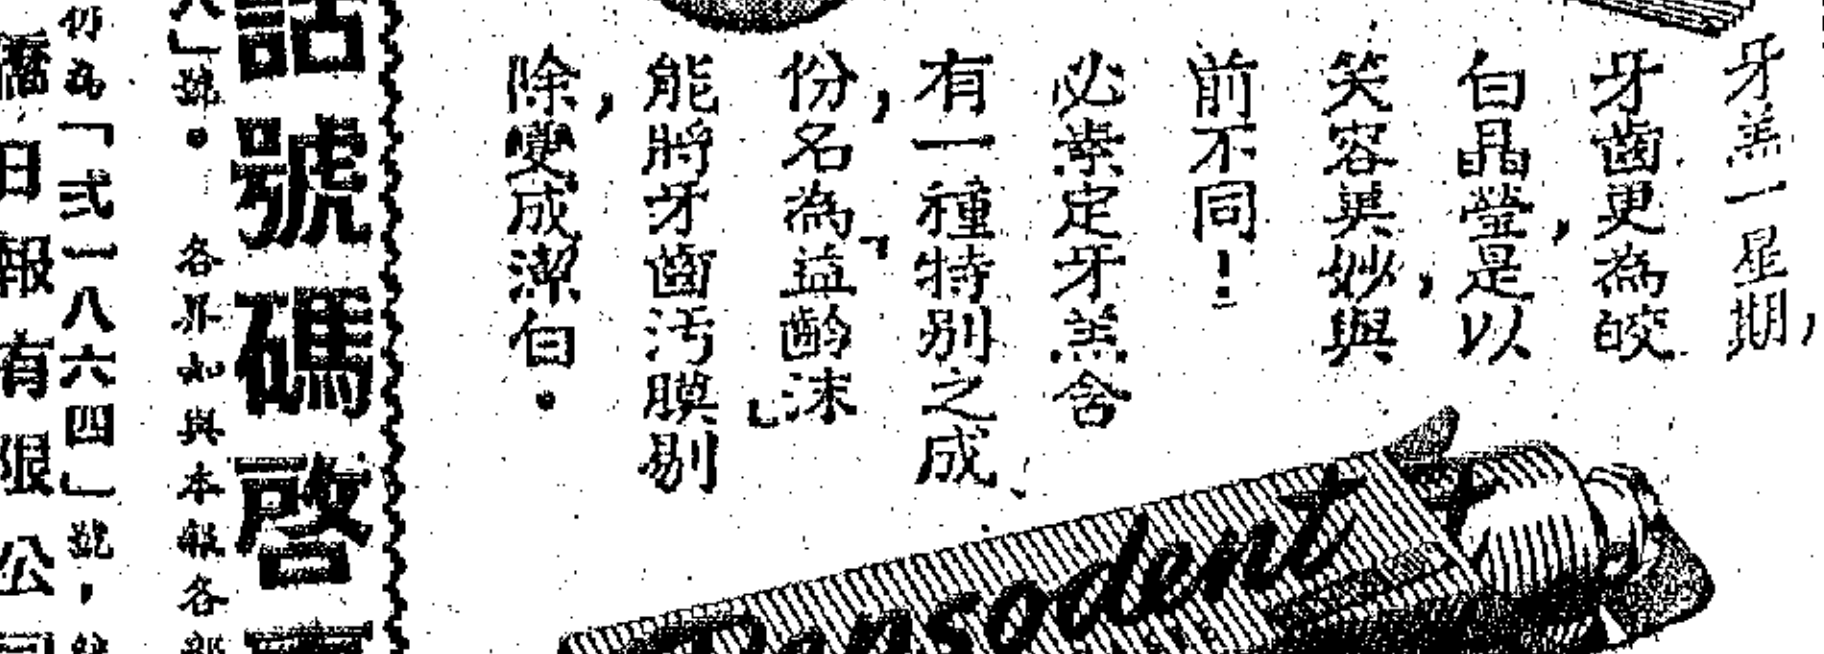 牙羔一星期，
牙齒更為皎
白晶瑩，是以
笑容更妙，與
前不同！
必素定牙羔含
有一種特別之成
份，名為「益齡沫」
能將牙齒汚膜剔
除，變成潔白。
Pepsodent
話號碼啓
」號。各界如與本報各部
仍為「弍一八六四」號，
僑日報有限公司